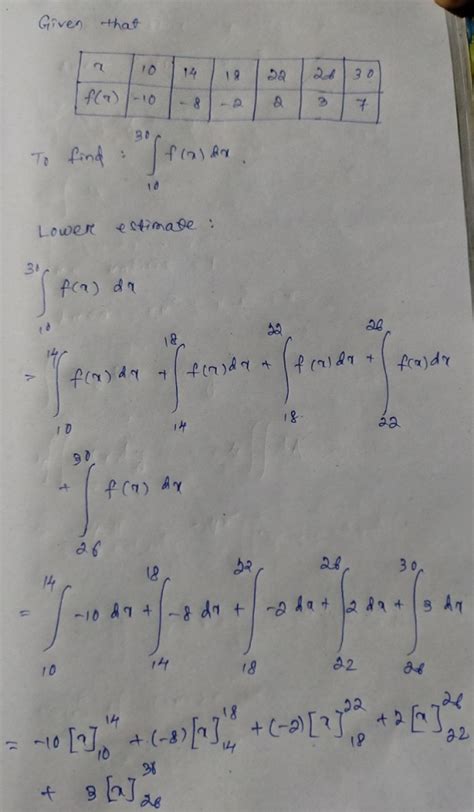 Given that
x 10 14 18 22 26 30
f(x) -10 -8 -2 2 3 7
To find : ∫₁₀³⁰ f(x) dx.
Lower estimate :
∫₁₀³⁰ f(x) dx
= ∫₁₀¹⁴ f(x) dx + ∫₁₄¹⁸ f(x) dx + ∫₁₈²² f(x) dx + ∫₂₂²⁶ f(x) dx
+ ∫₂₆³⁰ f(x) dx
= ∫₁₀¹⁴ -10 dx + ∫₁₄¹⁸ -8 dx + ∫₁₈²² -2 dx + ∫₂₂²⁶ 2 dx + ∫₂₆³⁰ 3 dx
= -10 [x]₁₀¹⁴ + (-8) [x]₁₄¹⁸ + (-2) [x]₁₈²² + 2 [x]₂₂²⁶
+ 3 [x]₂₆³⁰